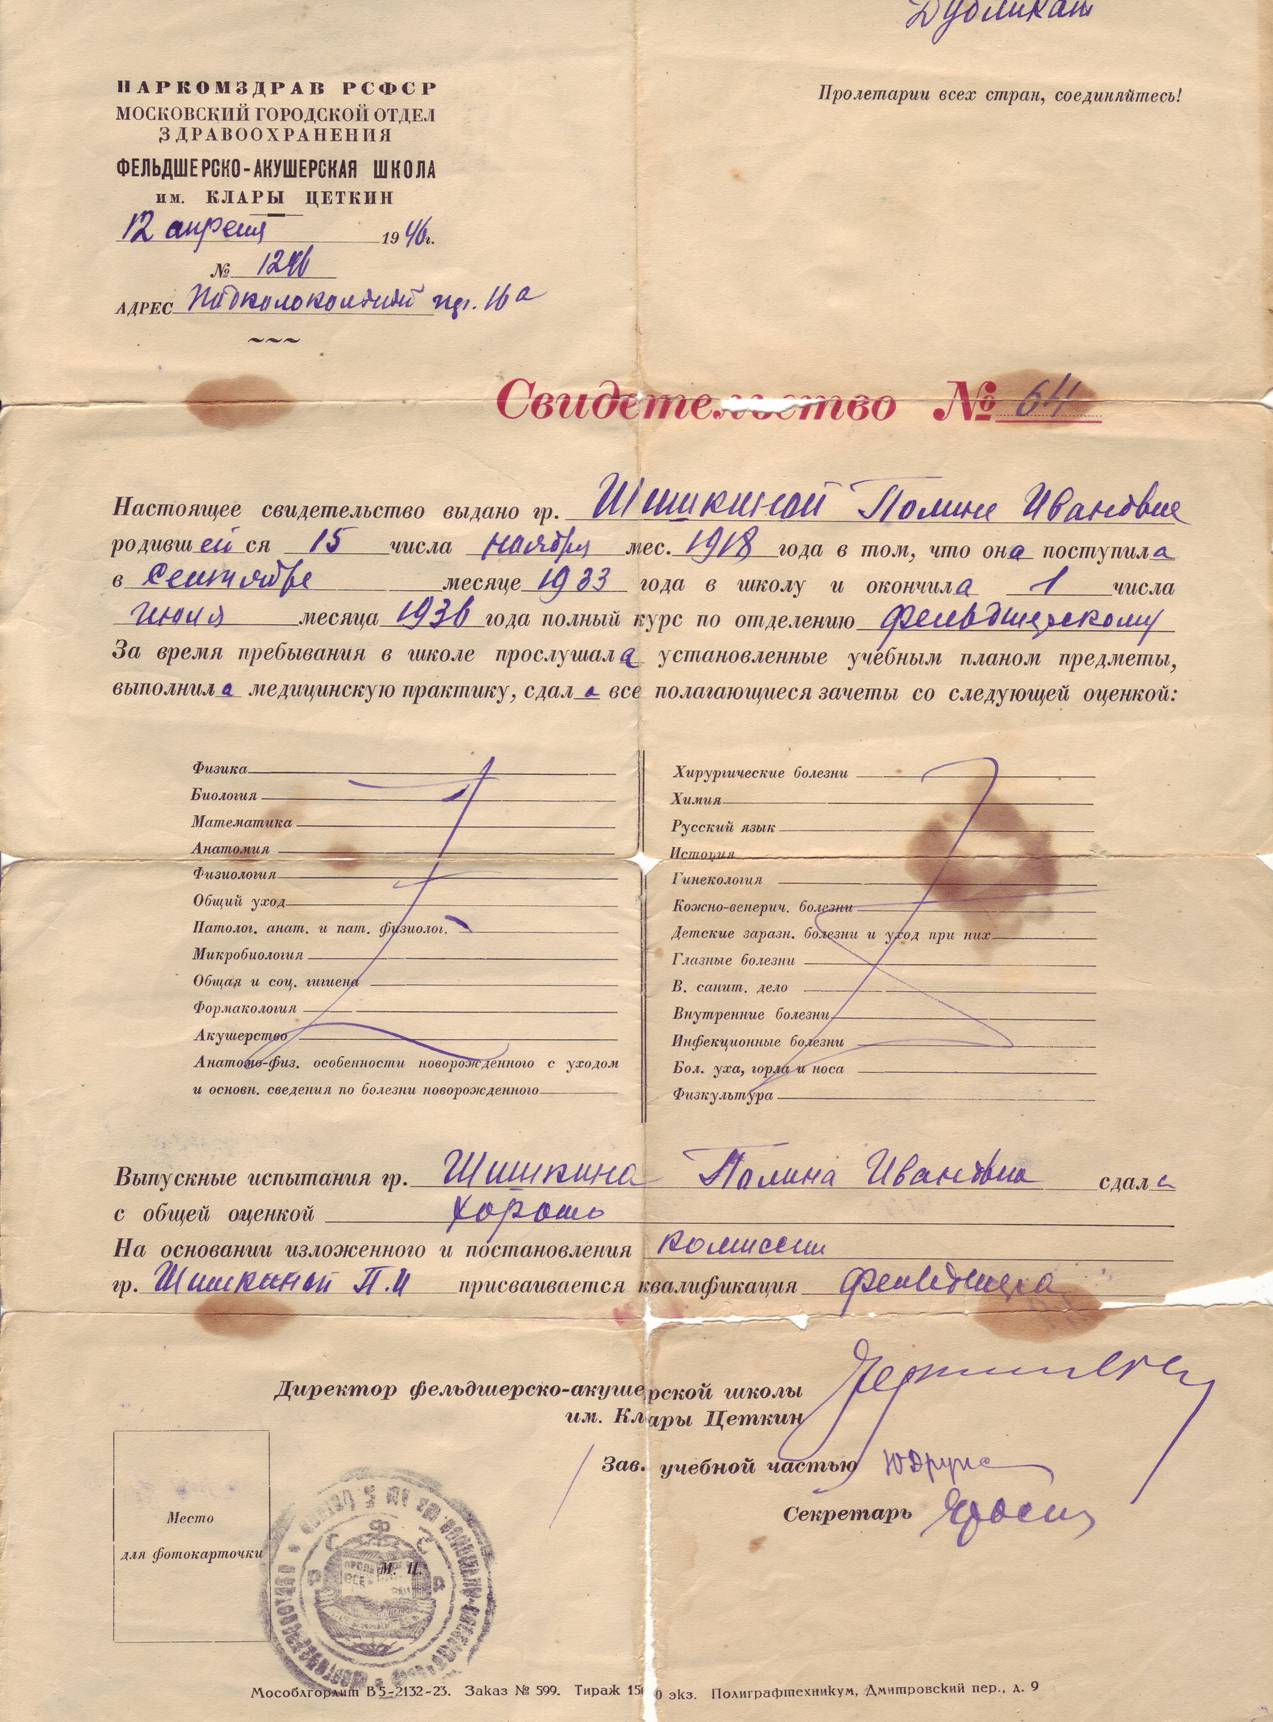 Дубликат
НАРКОМЗДРАВ РСФСР
МОСКОВСКИЙ ГОРОДСКОЙ ОТДЕЛ
ЗДРАВООХРАНЕНИЯ
ФЕЛЬДШЕРСКО-АКУШЕРСКАЯ ШКОЛА
им. КЛАРЫ ЦЕТКИН
12 апреля 1946г.
№ 1246
АДРЕС Подколокольный пер. 16а
Пролетарии всех стран, соединяйтесь!
Свидетельство № 64
Настоящее свидетельство выдано гр. Шишкиной Полине Ивановне
родившейся 15 числа ноября мес. 1918 года в том, что она поступила
в сентябре месяце 1933 года в школу и окончила 1 числа
июля месяца 1936 года полный курс по отделению фельдшерскому
За время пребывания в школе прослушала установленные учебным планом предметы,
выполнила медицинскую практику, сдала все полагающиеся зачеты со следующей оценкой:
Физика
Биология
Математика
Анатомия
Физиология
Общий уход
Патолог. анат. и пат. физиолог.
Микробиология
Общая и соц. гигиена
Формакология
Акушерство
Анатомо-физ. особенности новорожденного с уходом
и основн. сведения по болезни новорожденного
Хирургические болезни
Химия
Русский язык
История
Гинекология
Кожно-венерич. болезни
Детские заразн. болезни и уход при них
Глазные болезни
В. санит. дело
Внутренние болезни
Инфекционные болезни
Бол. уха, горла и носа
Физкультура
Выпускные испытания гр. Шишкина Полина Ивановна сдала
с общей оценкой хорошо
На основании изложенного и постановления комиссии
гр. Шишкиной П.И присваивается квалификация фельдшера
Директор фельдшерско-акушерской школы
им. Клары Цеткин
Зав. учебной частью
Секретарь
Место
для фотокарточки
М. П.
Мособлгорлит В5-2132-23. Заказ № 599. Тираж 15 0 экз. Полиграфтехникум, Дмитровский пер., д. 9